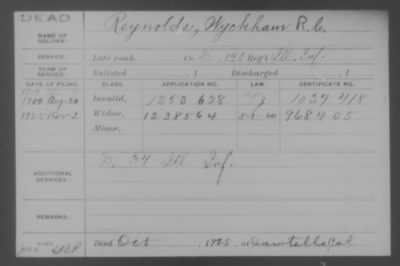 DEAD
NAME OF SOLDIER: Reynolds, Wyckham R. C.
SERVICE: Late rank, Co. D, 140 Reg't Ill. Inf.
TERM OF SERVICE: Enlisted , 1 Discharged , 1
DATE OF FILING. CLASS. APPLICATION NO. LAW. CERTIFICATE NO.
1900 Aug. 20 Invalid, 1253 628 1027 418
1925 Nov 2 Widow, 1238564 5-1-20 968405
Minor,
ADDITIONAL SERVICES: F. 34 Ill. Inf.
REMARKS:
Died Oct , 1925, at Sawtelle, Cal.